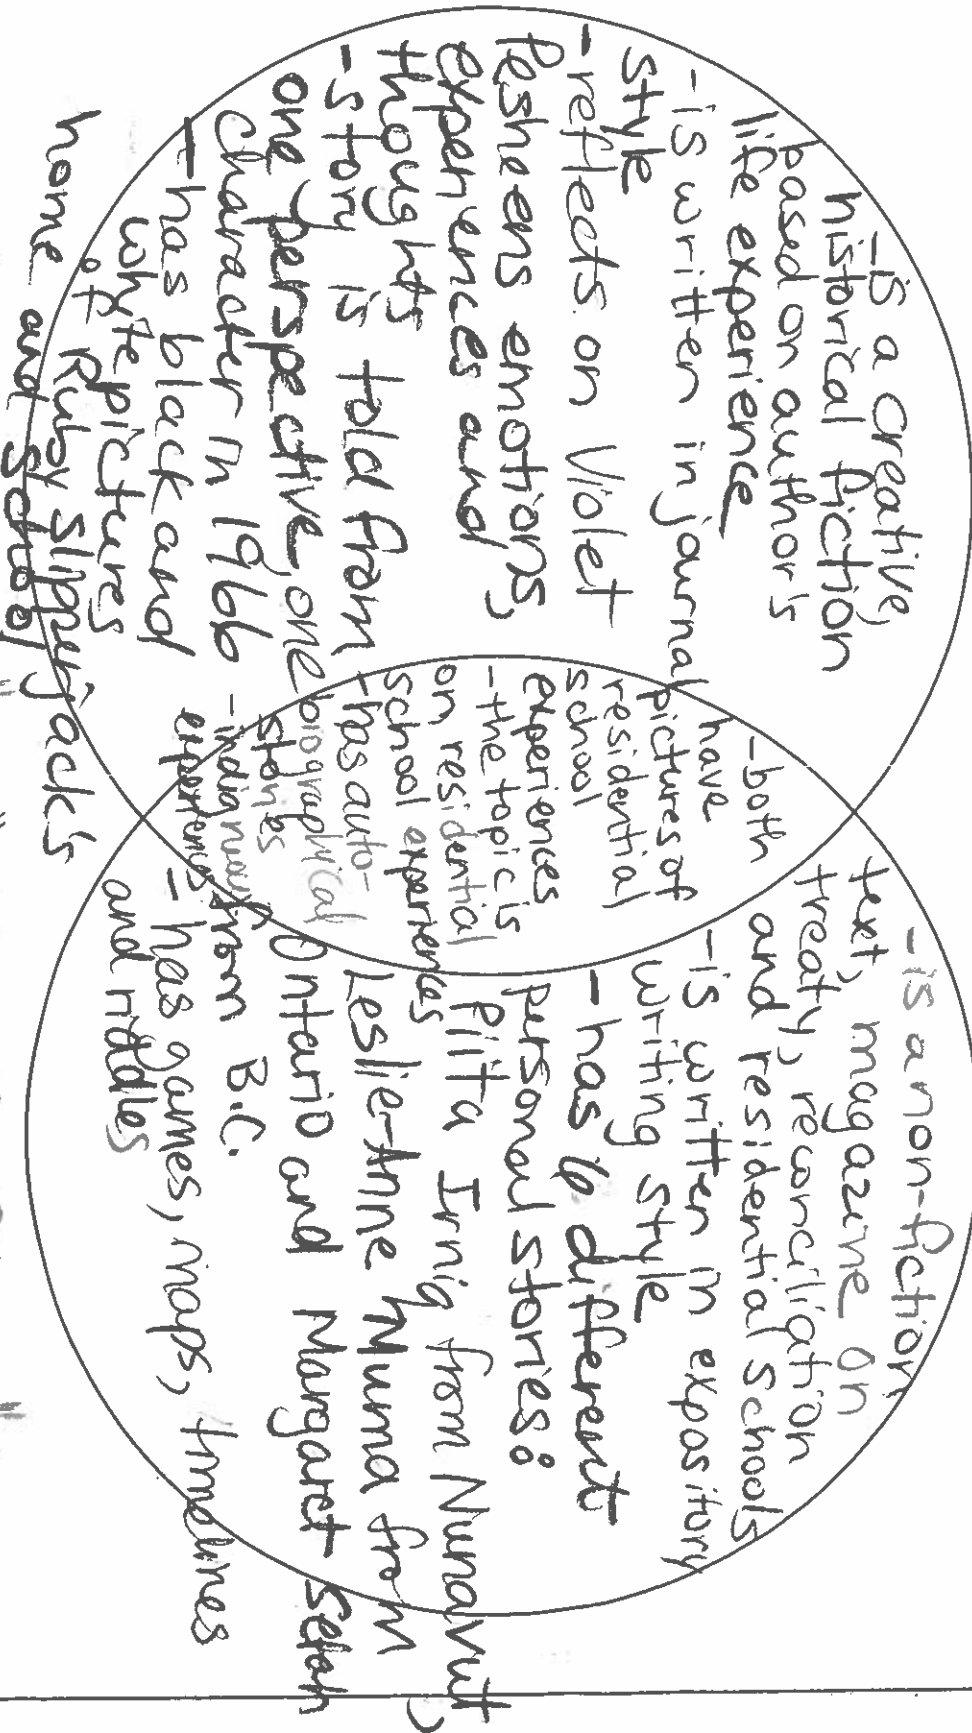 -is a creative,
historical fiction
based on author's
life experience
-is written in journal
style
-reflects on Violet
Pesheens emotions,
experiences and
thoughts
-story is told from
one perspective, one
character in 1966
-has black and
white pictures
of Ruby Slipperjack's
home and school
-both
have
pictures of
residential
school
experiences
-the topic is
on residential
school experiences
-has auto-
biographical
stories
-indigenous
experiences
-is a non-fiction
text, magazine on
treaty, reconciliation
and residential schools
-is written in expository
writing style
-has 6 different
personal stories:
Pilita Irniq from Nunavut,
Leslie-Anne Muma from
Ontario and Margaret Selah
from B.C.
-has games, maps, timelines
and riddles